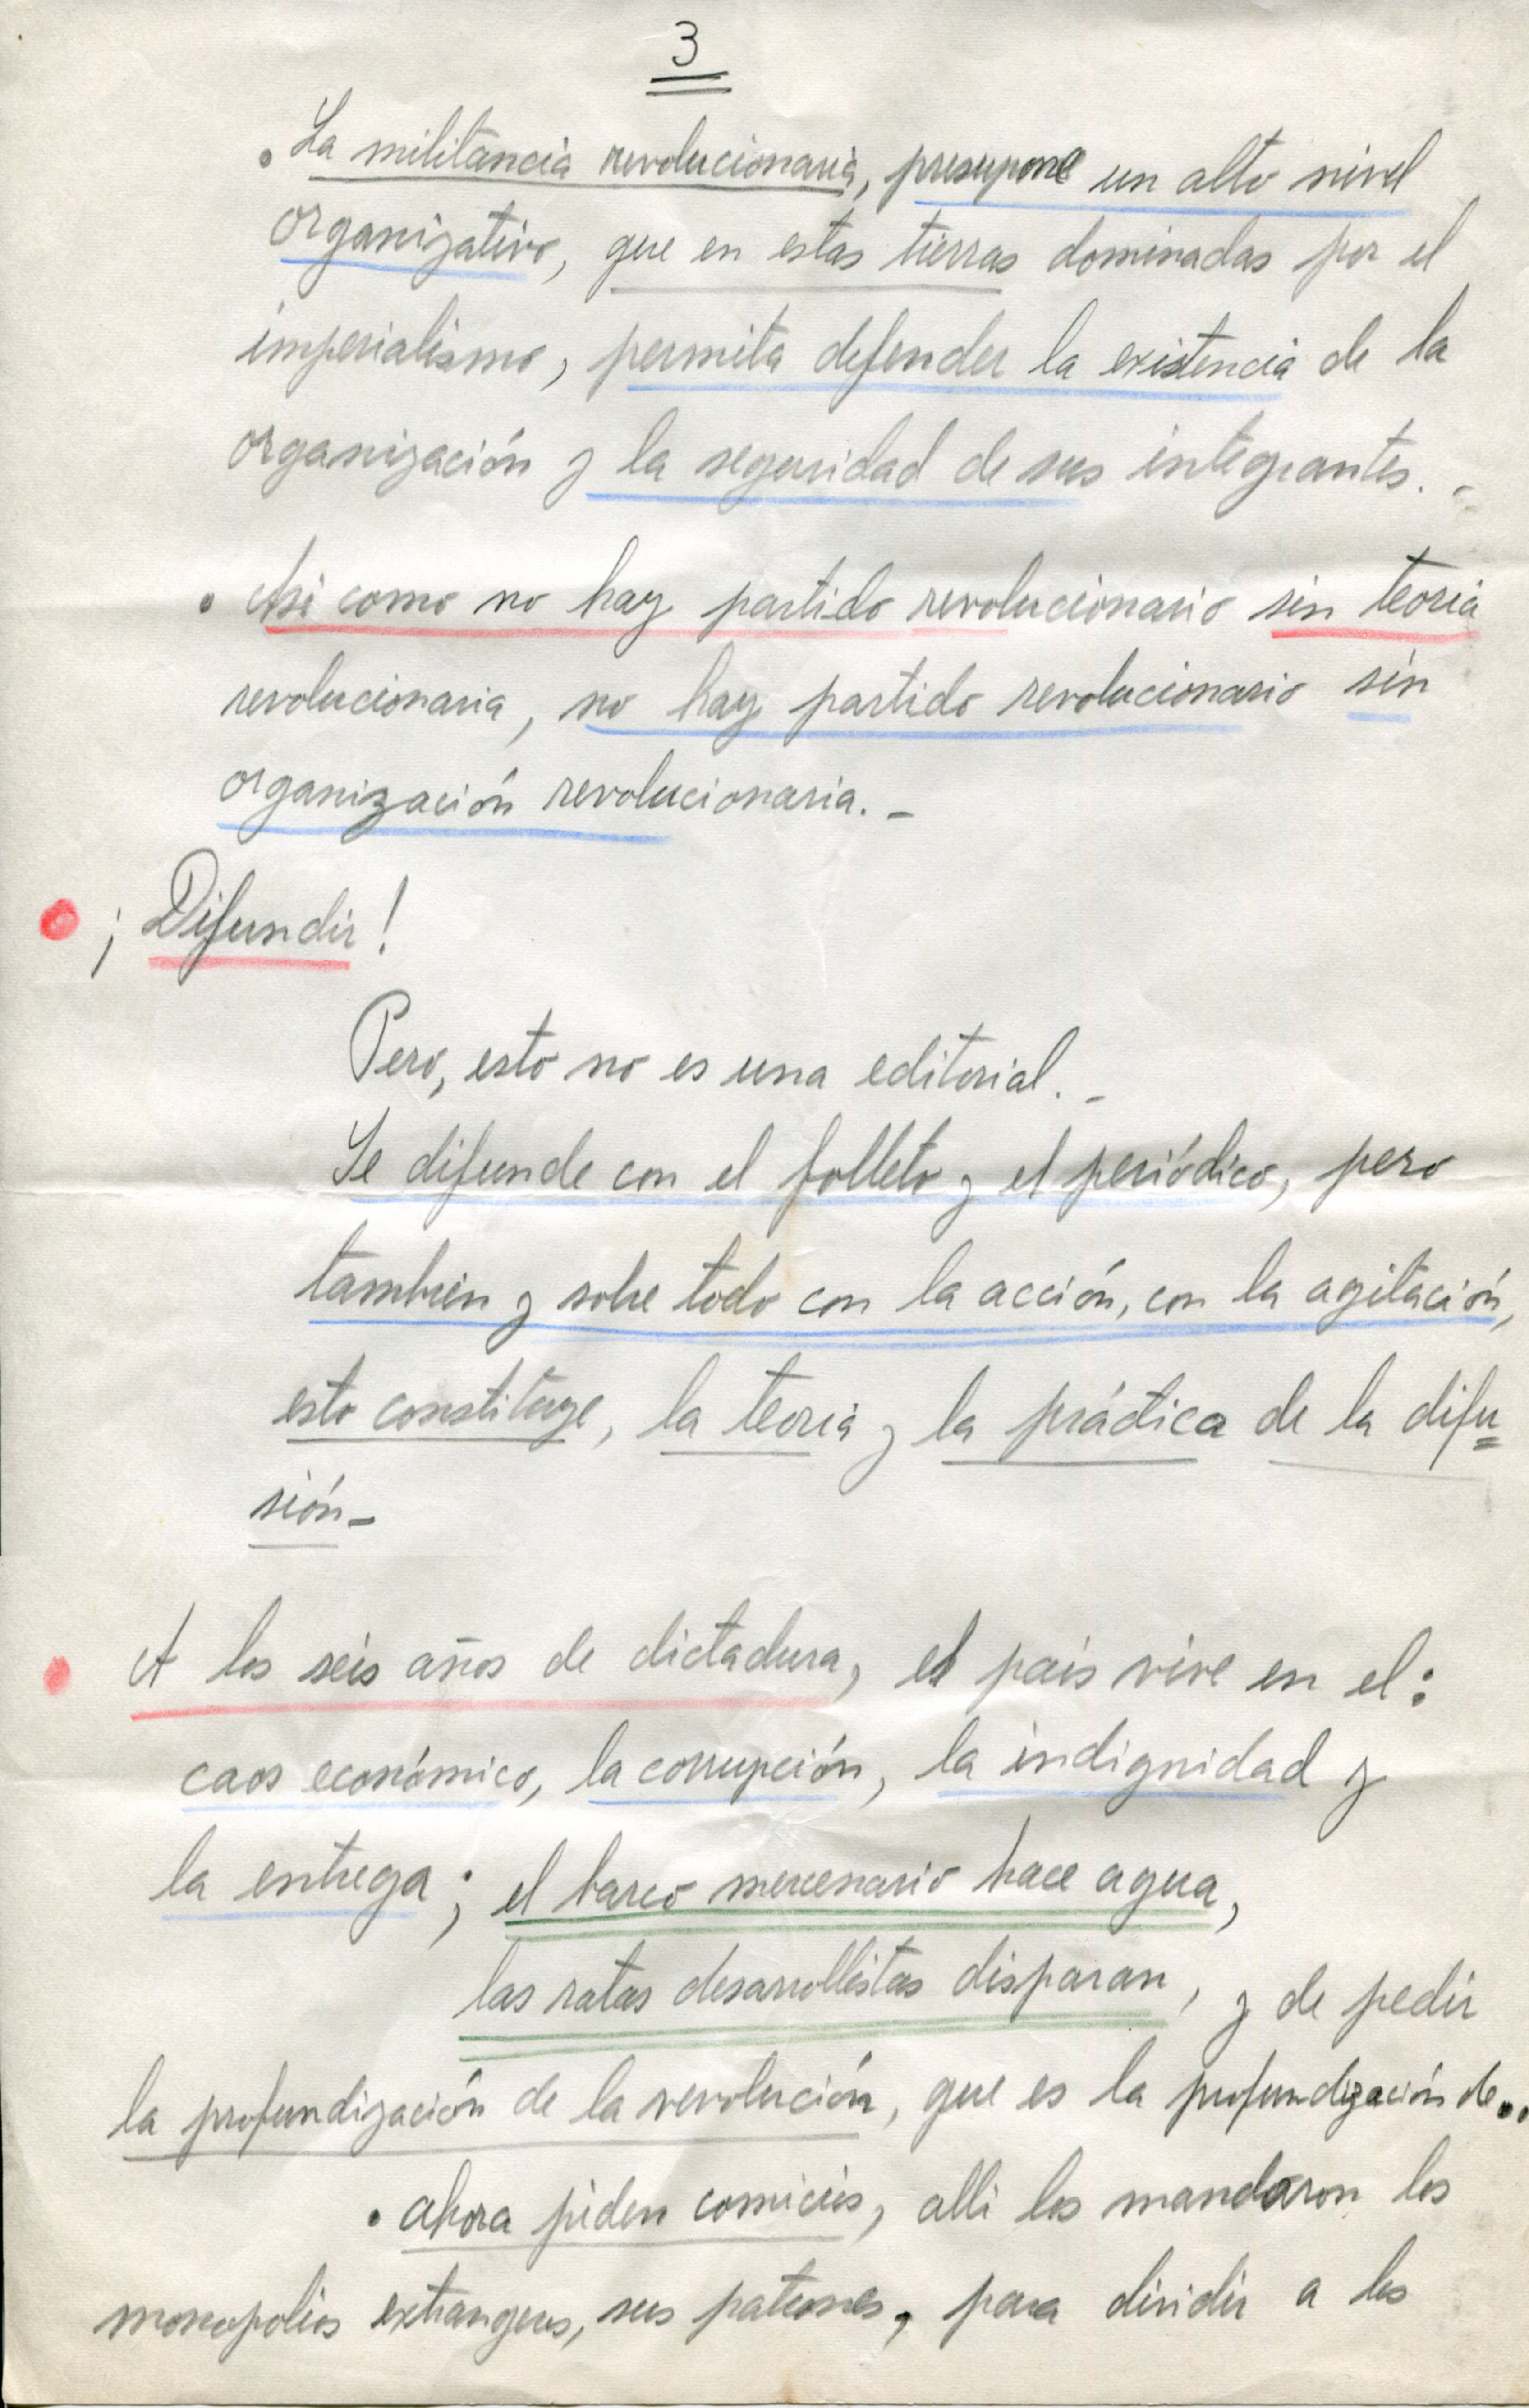 3
. La militancia revolucionaria, presupone un alto nivel
organizativo, que en estas tierras dominadas por el
imperialismo, permita defender la existencia de la
organización y la seguridad de sus integrantes. -
. Asi como no hay partido revolucionario sin teoria
revolucionaria, no hay partido revolucionario sin
organización revolucionaria. -
¡Difundir!
Pero, esto no es una editorial. -
Se difunde con el folleto y el periódico, pero
tambien y sobre todo con la acción, con la agitación,
esto constituye, la teoria y la práctica de la difu=
sión -
A los seis años de dictadura, el pais vive en el:
caos económico, la corrupción, la indignidad y
la entrega; el barco mercenario hace agua,
las ratas desarrollistas disparan, y de pedir
la profundización de la revolución, que es la profundización de..
. ahora piden comicios, alli los mandaron los
monopolios extrangeros, sus patrones, para dividir a los